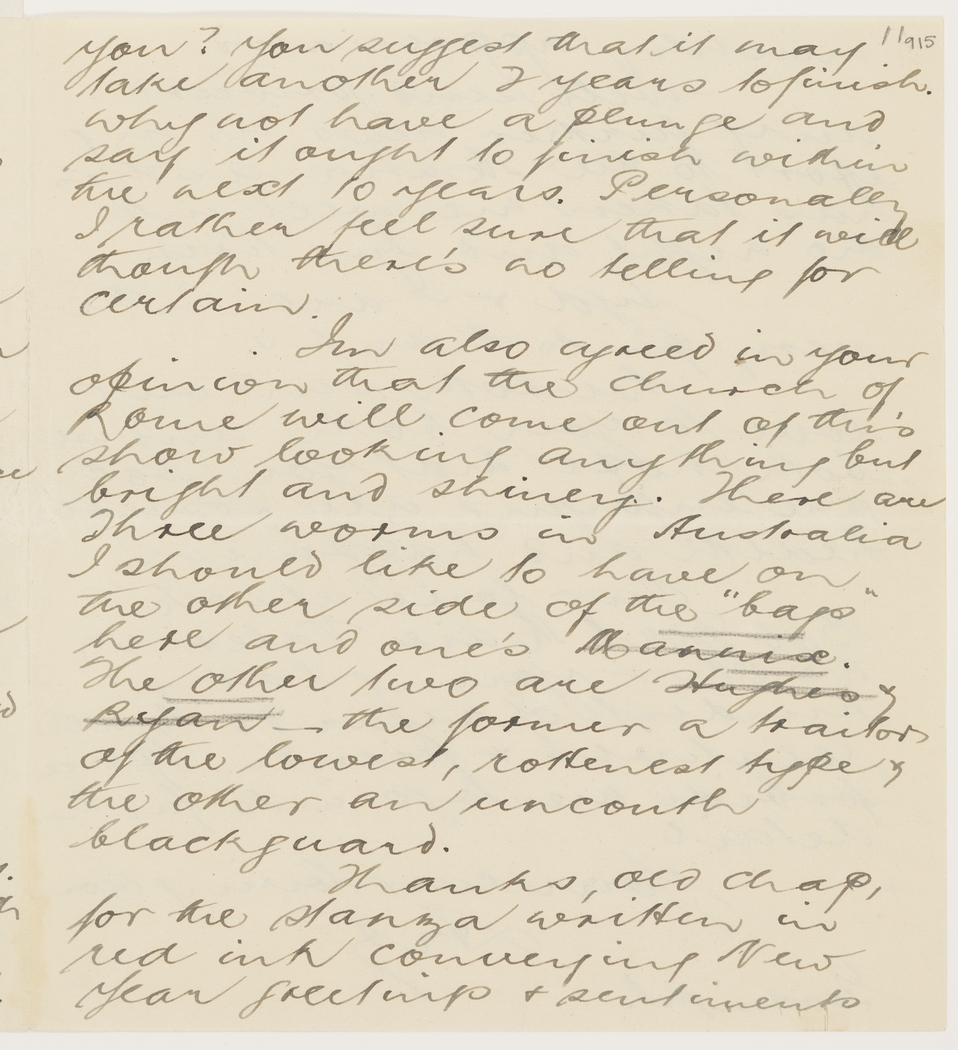 11915
you? You suggest that it may
take another 2 years to finish.
why not have a plunge and
say it ought to finish within
the next 10 years. Personally
I rather feel sure that it will
though there's no telling for
certain.
Im also agreed in your
opinion that the church of
Rome will come out of this
show looking anything but
bright and shiney. There are
three worms in Australia
I should like to have on
the other side of the "bags"
here and one's Mannix.
The other two are Hughes &
Ryan — the former a traitor
of the lowest, rottenest type &
the other an uncouth
blackguard.
Thanks, old chap,
for the stanza written in
red ink converging New
Year greetings & sentiments